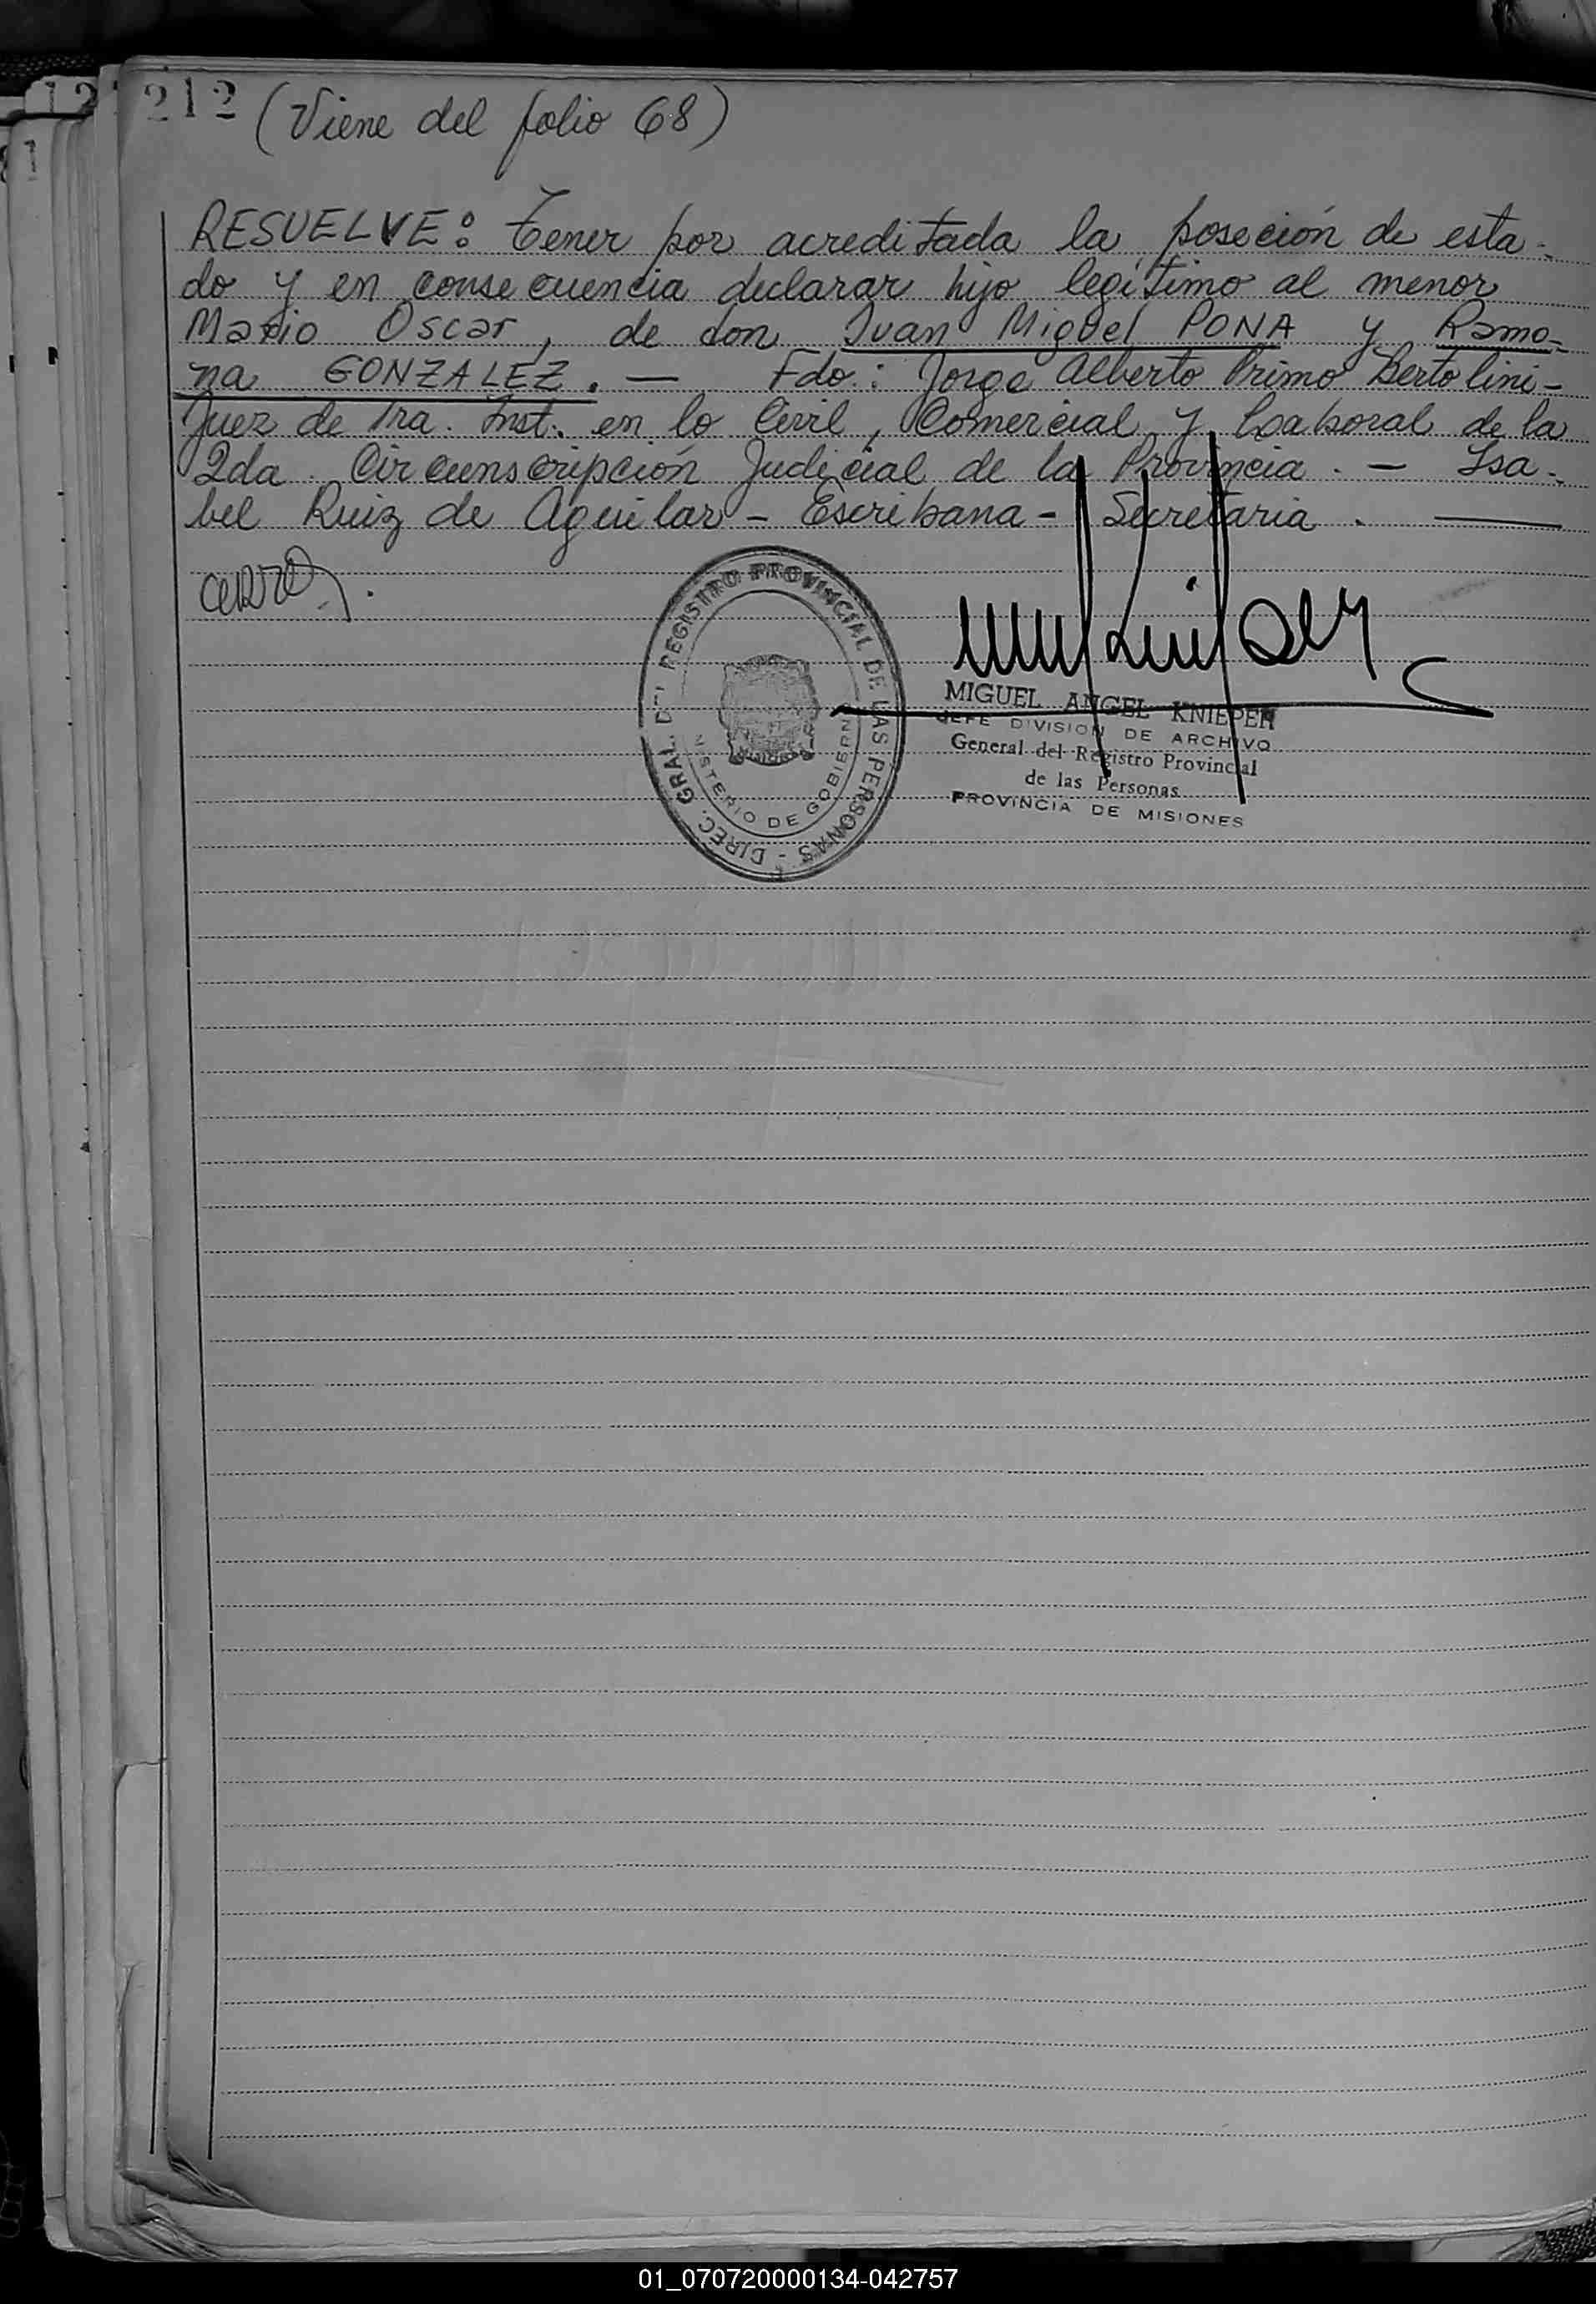 212 (Viene del folio 68)
RESUELVE: Tener por acreditada la poseción de esta-
do y en consecuencia declarar hijo legítimo al menor
Mario Oscar, de don Juan Miguel PONA y Ramo-
na GONZALEZ. — Fdo: Jorge Alberto Primo Bertolini-
Juez de 1ra. Inst. en lo Civil, Comercial y Laboral de la
2da. Circunscripción Judicial de la Provincia. — Isa-
bel Ruiz de Aguilar - Escribana - Secretaria. —
DIREC. GRAL. DEL REGISTRO PROVINCIAL DE LAS PERSONAS -
MINISTERIO DE GOBIERNO
MIGUEL ANGEL KNIEPER
JEFE DIVISION DE ARCHIVO
General del Registro Provincial
de las Personas
PROVINCIA DE MISIONES
01_070720000134-042757